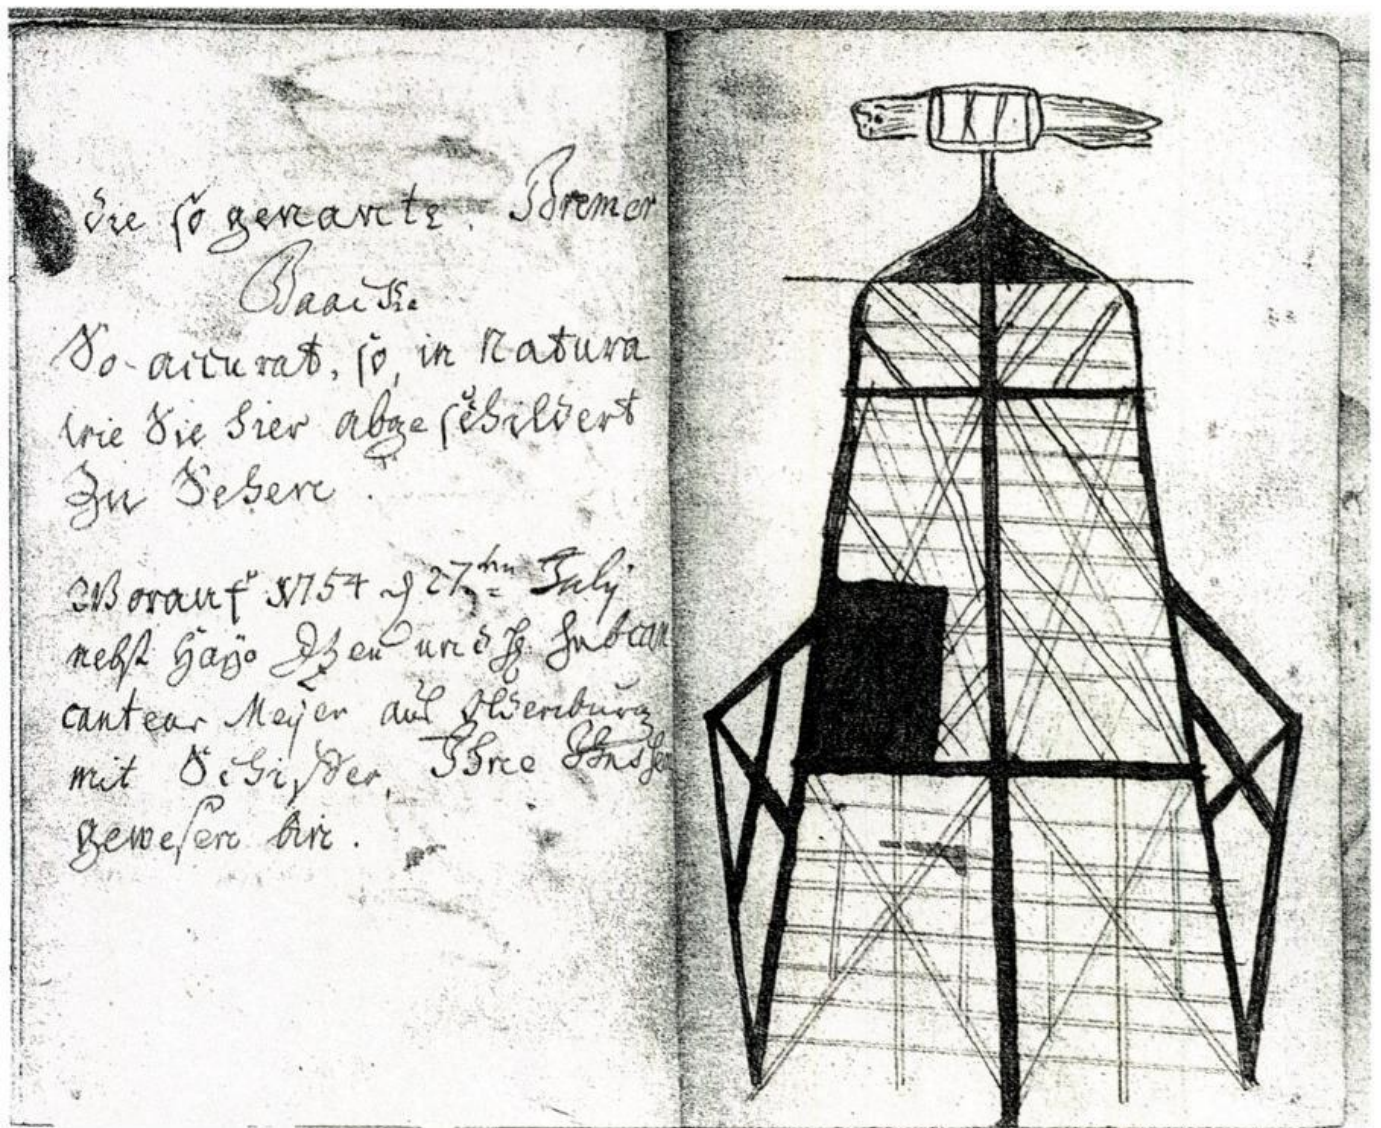 die so genante. Bremer
Baacke
So accurat, so, in Natura
wie Sie hier abgeschildert
Zu Sehen.
Worauf 1754 d 27ten July
nebst Hayo und
canteur Meÿer aus Oldenburg
mit Schiffer, Ihne
gewesen bin.